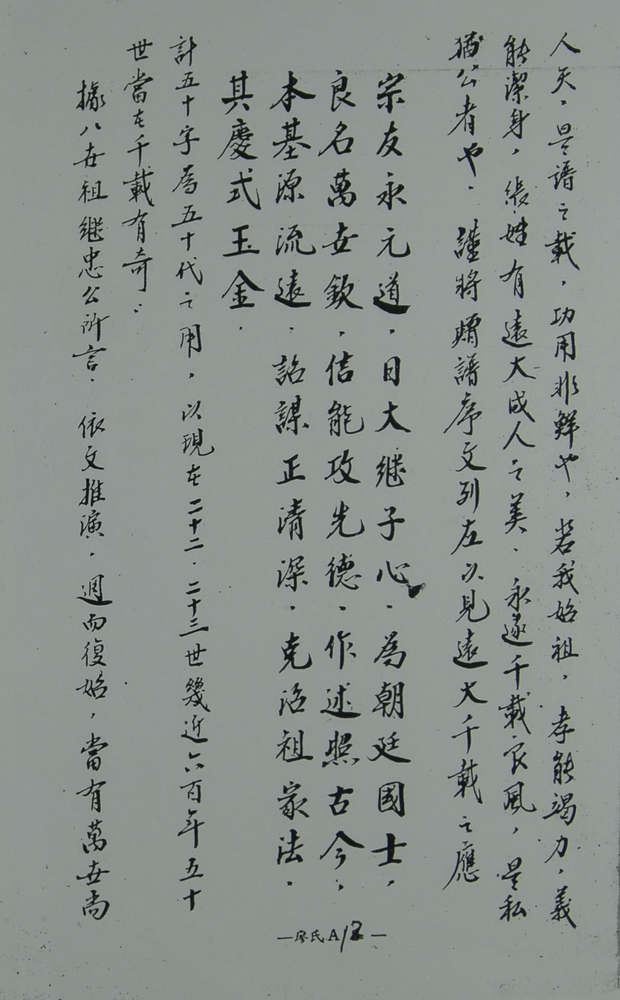 人矣，是譜之載，功用非鮮也，若我始祖，孝能竭力，義
能潔身，張姓有遠大成人之美．永遂千載良風，是私
猶公者也．謹將贈譜序文列左以見遠大千載之應
宗友永元道，日大继子心．為朝廷國士，
良名萬世欽，信能攻先德．作述照古今；
本基源流遠．詒謀正清深．克治祖家法．
其慶式玉金．
計五十字為五十代之用，以現在二十二．二十三世幾近六百年五十
世當在千載有奇：
據八世祖继忠公所言．依文推演．週而復始，當有萬世尚
—廖氏A12—